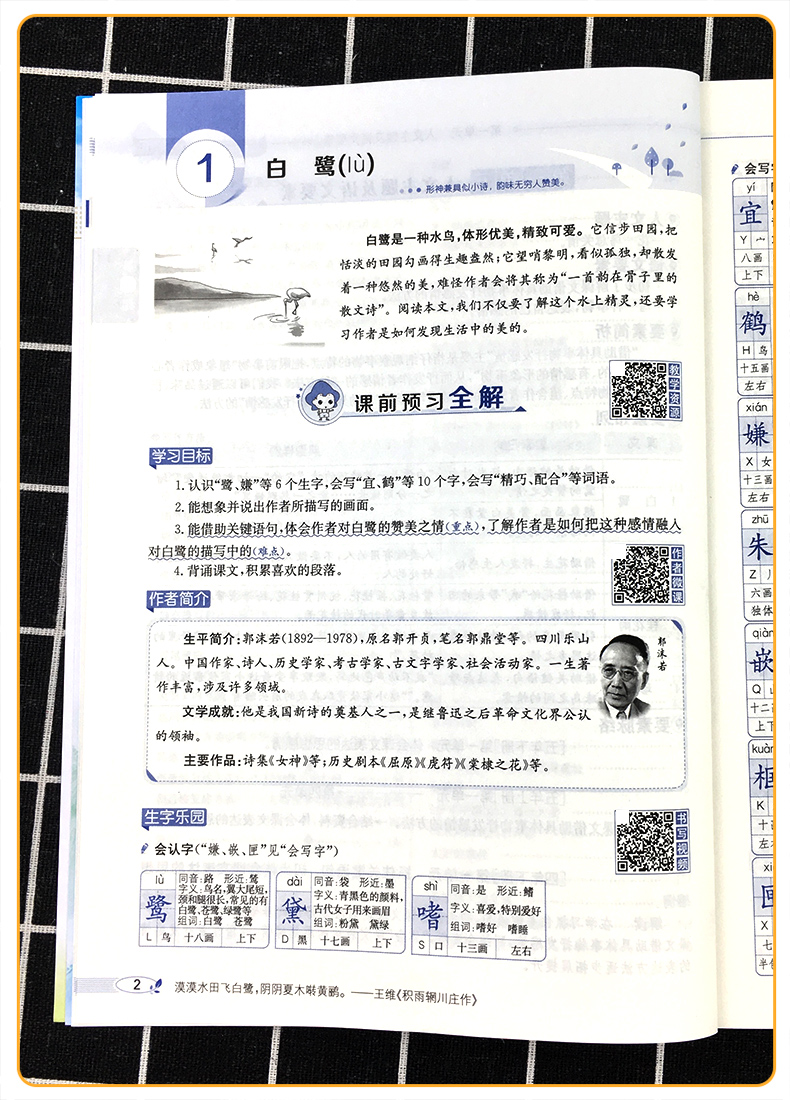 1
白 鹭(lù)
形神兼具似小诗，韵味无穷人赞美。
白鹭是一种水鸟，体形优美，精致可爱。它信步田园，把
恬淡的田园勾画得生趣盎然；它望哨黎明，看似孤独，却散发
着一种悠然的美，难怪作者会将其称为“一首韵在骨子里的
散文诗”。阅读本文，我们不仅要了解这个水上精灵，还要学
习作者是如何发现生活中的美的。
课前预习全解
教学资源
学习目标
1. 认识“鹭、嫌”等 6 个生字，会写“宜、鹤”等 10 个字，会写“精巧、配合”等词语。
2. 能想象并说出作者所描写的画面。
3. 能借助关键语句，体会作者对白鹭的赞美之情(重点)，了解作者是如何把这种感情融入
对白鹭的描写中的(难点)。
4. 背诵课文，积累喜欢的段落。
作者微课
作者简介
生平简介：郭沫若(1892—1978)，原名郭开贞，笔名郭鼎堂等。四川乐山
人。中国作家、诗人、历史学家、考古学家、古文字学家、社会活动家。一生著
作丰富，涉及许多领域。
文学成就：他是我国新诗的奠基人之一，是继鲁迅之后革命文化界公认
的领袖。
主要作品：诗集《女神》等；历史剧本《屈原》《虎符》《棠棣之花》等。
郭沫若
生字乐园
书写视频
会认字(“嫌、嵌、匣”见“会写字”)
lù
鹭
同音：路 形近：鸶
字义：鸟名，翼大尾短，
颈和腿很长，常见的有
白鹭、苍鹭、绿鹭等
组词：白鹭 苍鹭
L 鸟 十八画 上下
dài
黛
同音：袋 形近：墨
字义：青黑色的颜料，
古代女子用来画眉
组词：粉黛 黛绿
D 黑 十七画 上下
shì
嗜
同音：是 形近：鳍
字义：喜爱，特别爱好
组词：嗜好 嗜睡
S 口 十三画 左右
2
漠漠水田飞白鹭，阴阴夏木啭黄鹂。——王维《积雨辋川庄作》
会写字
yí
宜
Y 宀
八画
上下
hè
鹤
H 鸟
十五画
左右
xián
嫌
X 女
十三画
左右
zhū
朱
Z 丿
六画
独体
qiàn
嵌
Q 山
十二画
上下
kuàn
框
K
十
左右
xi
匣
X
七
半包